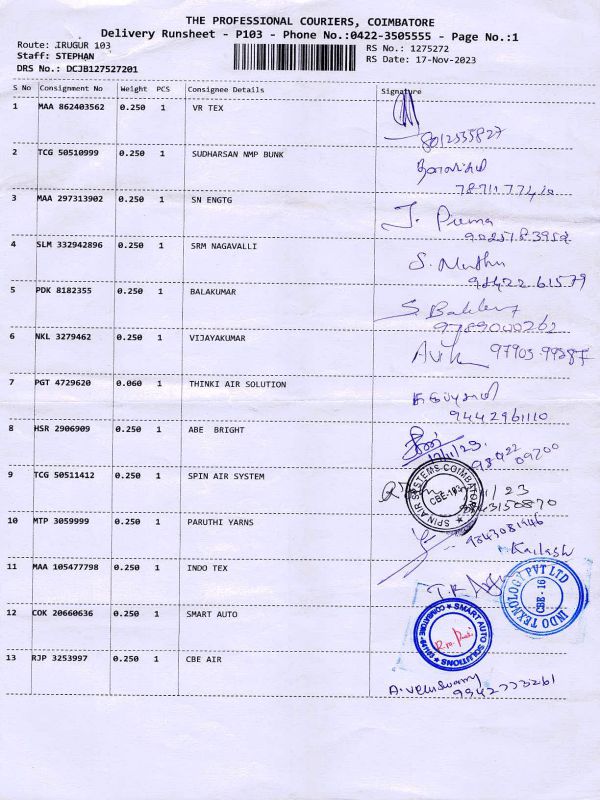 THE PROFESSIONAL COURIERS, COIMBATORE
Delivery Runsheet - P103 - Phone No.:0422-3505555 - Page No.:1
Route: IRUGUR 103
RS No.: 1275272
Staff: STEPHAN
RS Date: 17-Nov-2023
DRS No.: DCJB127527201
S No Consignment No Weight PCS Consignee Details Signature
1 MAA 862403562 0.250 1 VR TEX
8012535827
2 TCG 50510999 0.250 1 SUDHARSAN NMP BUNK
3 MAA 297313902 0.250 1 SN ENGTG
J. Prema
4 SLM 332942896 0.250 1 SRM NAGAVALLI
S. Muthu
98422 61579
5 PDK 8182355 0.250 1 BALAKUMAR
9789000262
6 NKL 3279462 0.250 1 VIJAYAKUMAR
7 PGT 4729620 0.060 1 THINKI AIR SOLUTION
9442961110
8 HSR 2906909 0.250 1 ABE BRIGHT
17/11/23.
98422 09200
9 TCG 50511412 0.250 1 SPIN AIR SYSTEM
SPIN AIR SYSTEMS COIMBATORE
CBE-103
/11/23
9843150870
10 MTP 3059999 0.250 1 PARUTHI YARNS
9843081946
Kailash
11 MAA 105477798 0.250 1 INDO TEX
INDO TEXNOLOGY PVT LTD
CBE - 16
12 COK 20660636 0.250 1 SMART AUTO
SMART AUTO SOLUTIONS
13 RJP 3253997 0.250 1 CBE AIR
A. Veluswamy
9942773261